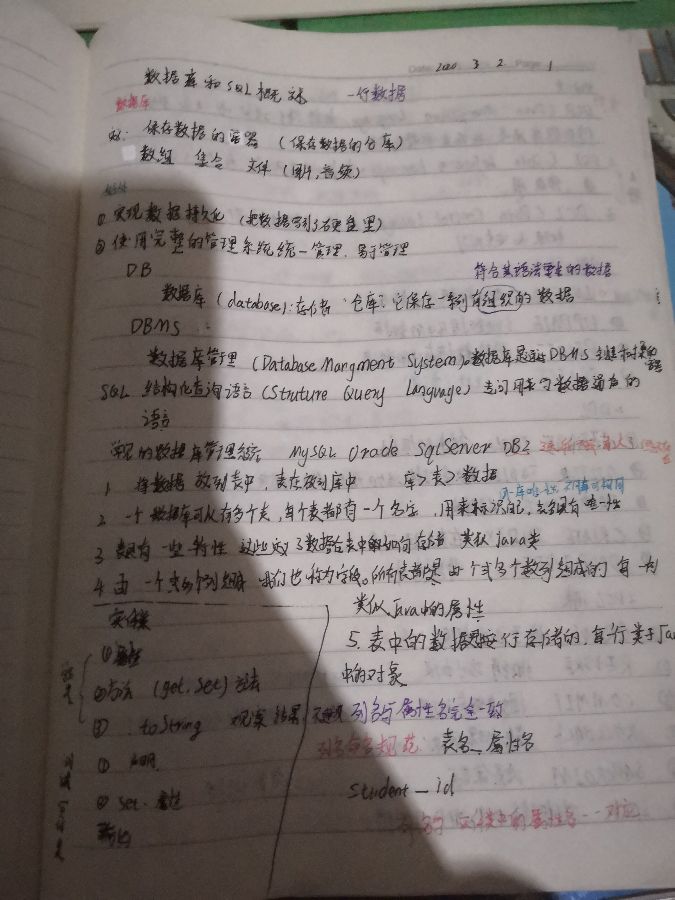 Date 2020 3 2 Page 1
数据库和SQL概述 一行数据
数据库
如: 保存数据的容器 (保存数据的仓库)
数组 集合 文件 (图片,音频)
好处
① 实现数据持久化 (把数据写到了硬盘里)
② 使用完整的管理系统统一管理,易于管理
DB 符合某语法要求的数据
数据库 (database):存储 仓库:它保存一系列有组织的数据
DBMS :
数据库管理 (Database Mangment System)。数据库是通过DBMS创建和
SQL 结构化查询语言 (Struture Query Language) 专门用来与数据通信的
语言
常见的数据库管理系统 MySQL Oracle SqlServer DB2
1 将数据放到表中,表在放到库中 库>表>数据
同一库 不同可相同
2. 一个数据库可以有多个表,每个表都有一个名字,用来标识自己,表名具有唯一性
3 表具有一些特性 这些定义了数据在表中如何存储 类似Java类
4 由一个或多个列组成 我们也称为字段。所有表都是由一个或多个列组成的 每一列
类似Java中的属性
实体类
5. 表中的数据是按行存储的,每行类于Ja
① 属性
中的对象
②方法 (get, set)方法
③ .toString 观察结果
列名与属性名完全一致
列名命名规范: 表名_属性名
student_id
② set.属性
列名与实体类中的属性名一一对应